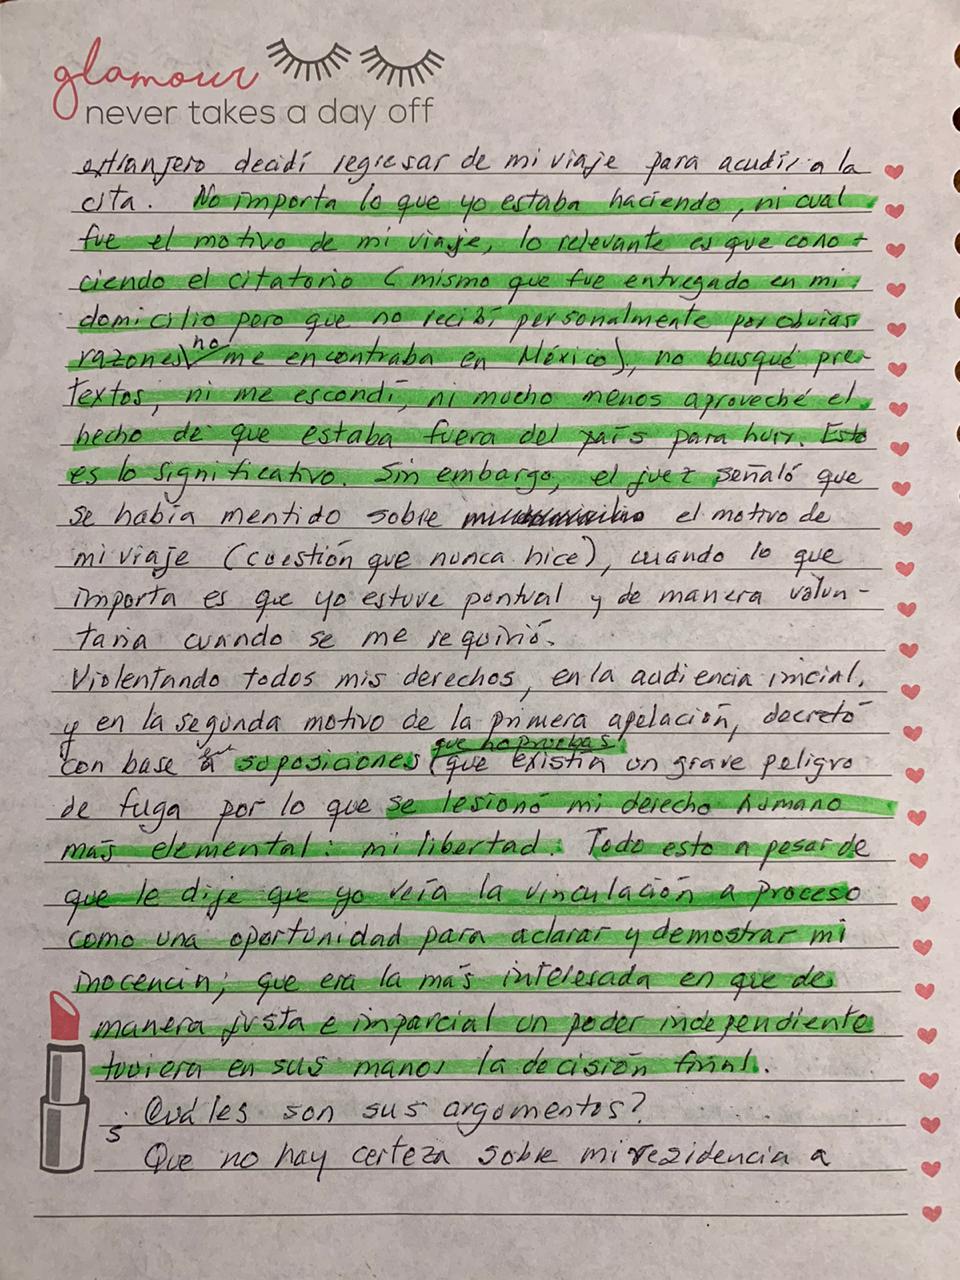 glamour
never takes a day off
extranjero decidí regresar de mi viaje para acudir a la
cita. No importa lo que yo estaba haciendo, ni cual
fue el motivo de mi viaje, lo relevante es que cono-
ciendo el citatorio (mismo que fue entregado en mi
domicilio pero que no recibí personalmente por obvias
razones no me encontraba en México), no busqué pre-
textos, ni me escondí, ni mucho menos aproveché el
hecho de que estaba fuera del país para huir. Esto
es lo significativo. Sin embargo, el juez señaló que
se había mentido sobre el motivo de
mi viaje (cuestión que nunca hice), cuando lo que
importa es que yo estuve puntual y de manera volun-
taria cuando se me requirió.
Violentando todos mis derechos, en la audiencia inicial,
y en la segunda motivo de la primera apelación, decretó
que no pruebas
con base a suposiciones (que existía un grave peligro
de fuga por lo que se lesionó mi derecho humano
más elemental: mi libertad. Todo esto a pesar de
que le dije que yo veía la vinculación a proceso
como una oportunidad para aclarar y demostrar mi
inocencia; que era la más interesada en que de
manera justa e imparcial un poder independiente
tuviera en sus manos la decisión final.
Cuáles son sus argumentos?
5
Que no hay certeza sobre mi residencia a